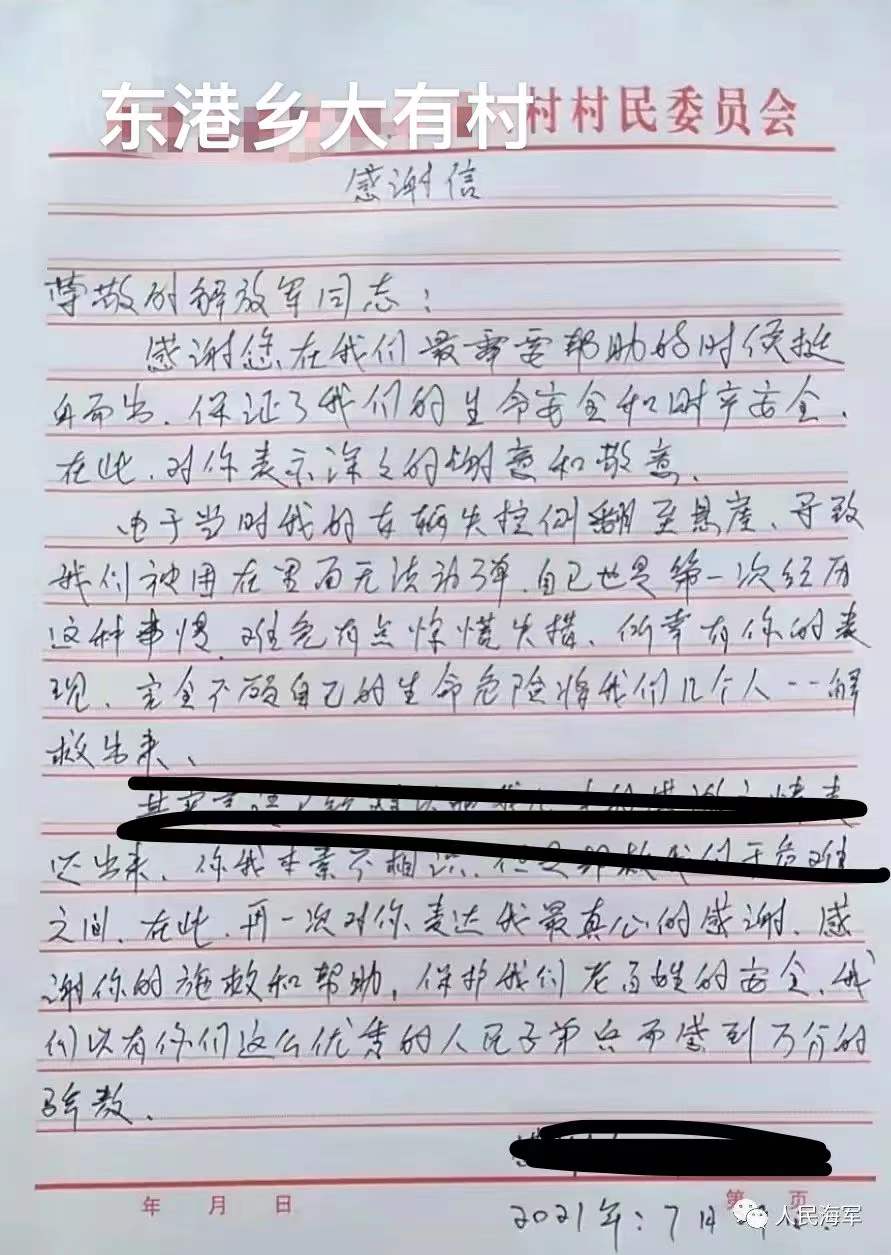 东港乡大有村村村民委员会
感谢信
尊敬的解放军同志：
感谢您在我们最需要帮助的时候挺
身而出、保证了我们的生命安全和财产安全、
在此、对你表示深深的谢意和敬意、
由于当时我的车辆失控侧翻至悬崖、导致
我们被困在里面无法动弹、自己也是第一次经历
这种事情、难免有点惊慌失措、所幸有你的表
现、完全不顾自己的生命危险将我们几个人一一解
救出来、
达出来、你我本素不相识、但是却救我们于危难
之间、在此、再一次对你表达我最真心的感谢、感
谢你的施救和帮助，保护我们老百姓的安全、我
们以有你们这么优秀的人民子弟兵而感到万分的
骄傲、
年 月 日 第 页
2021年:7月
人民海军